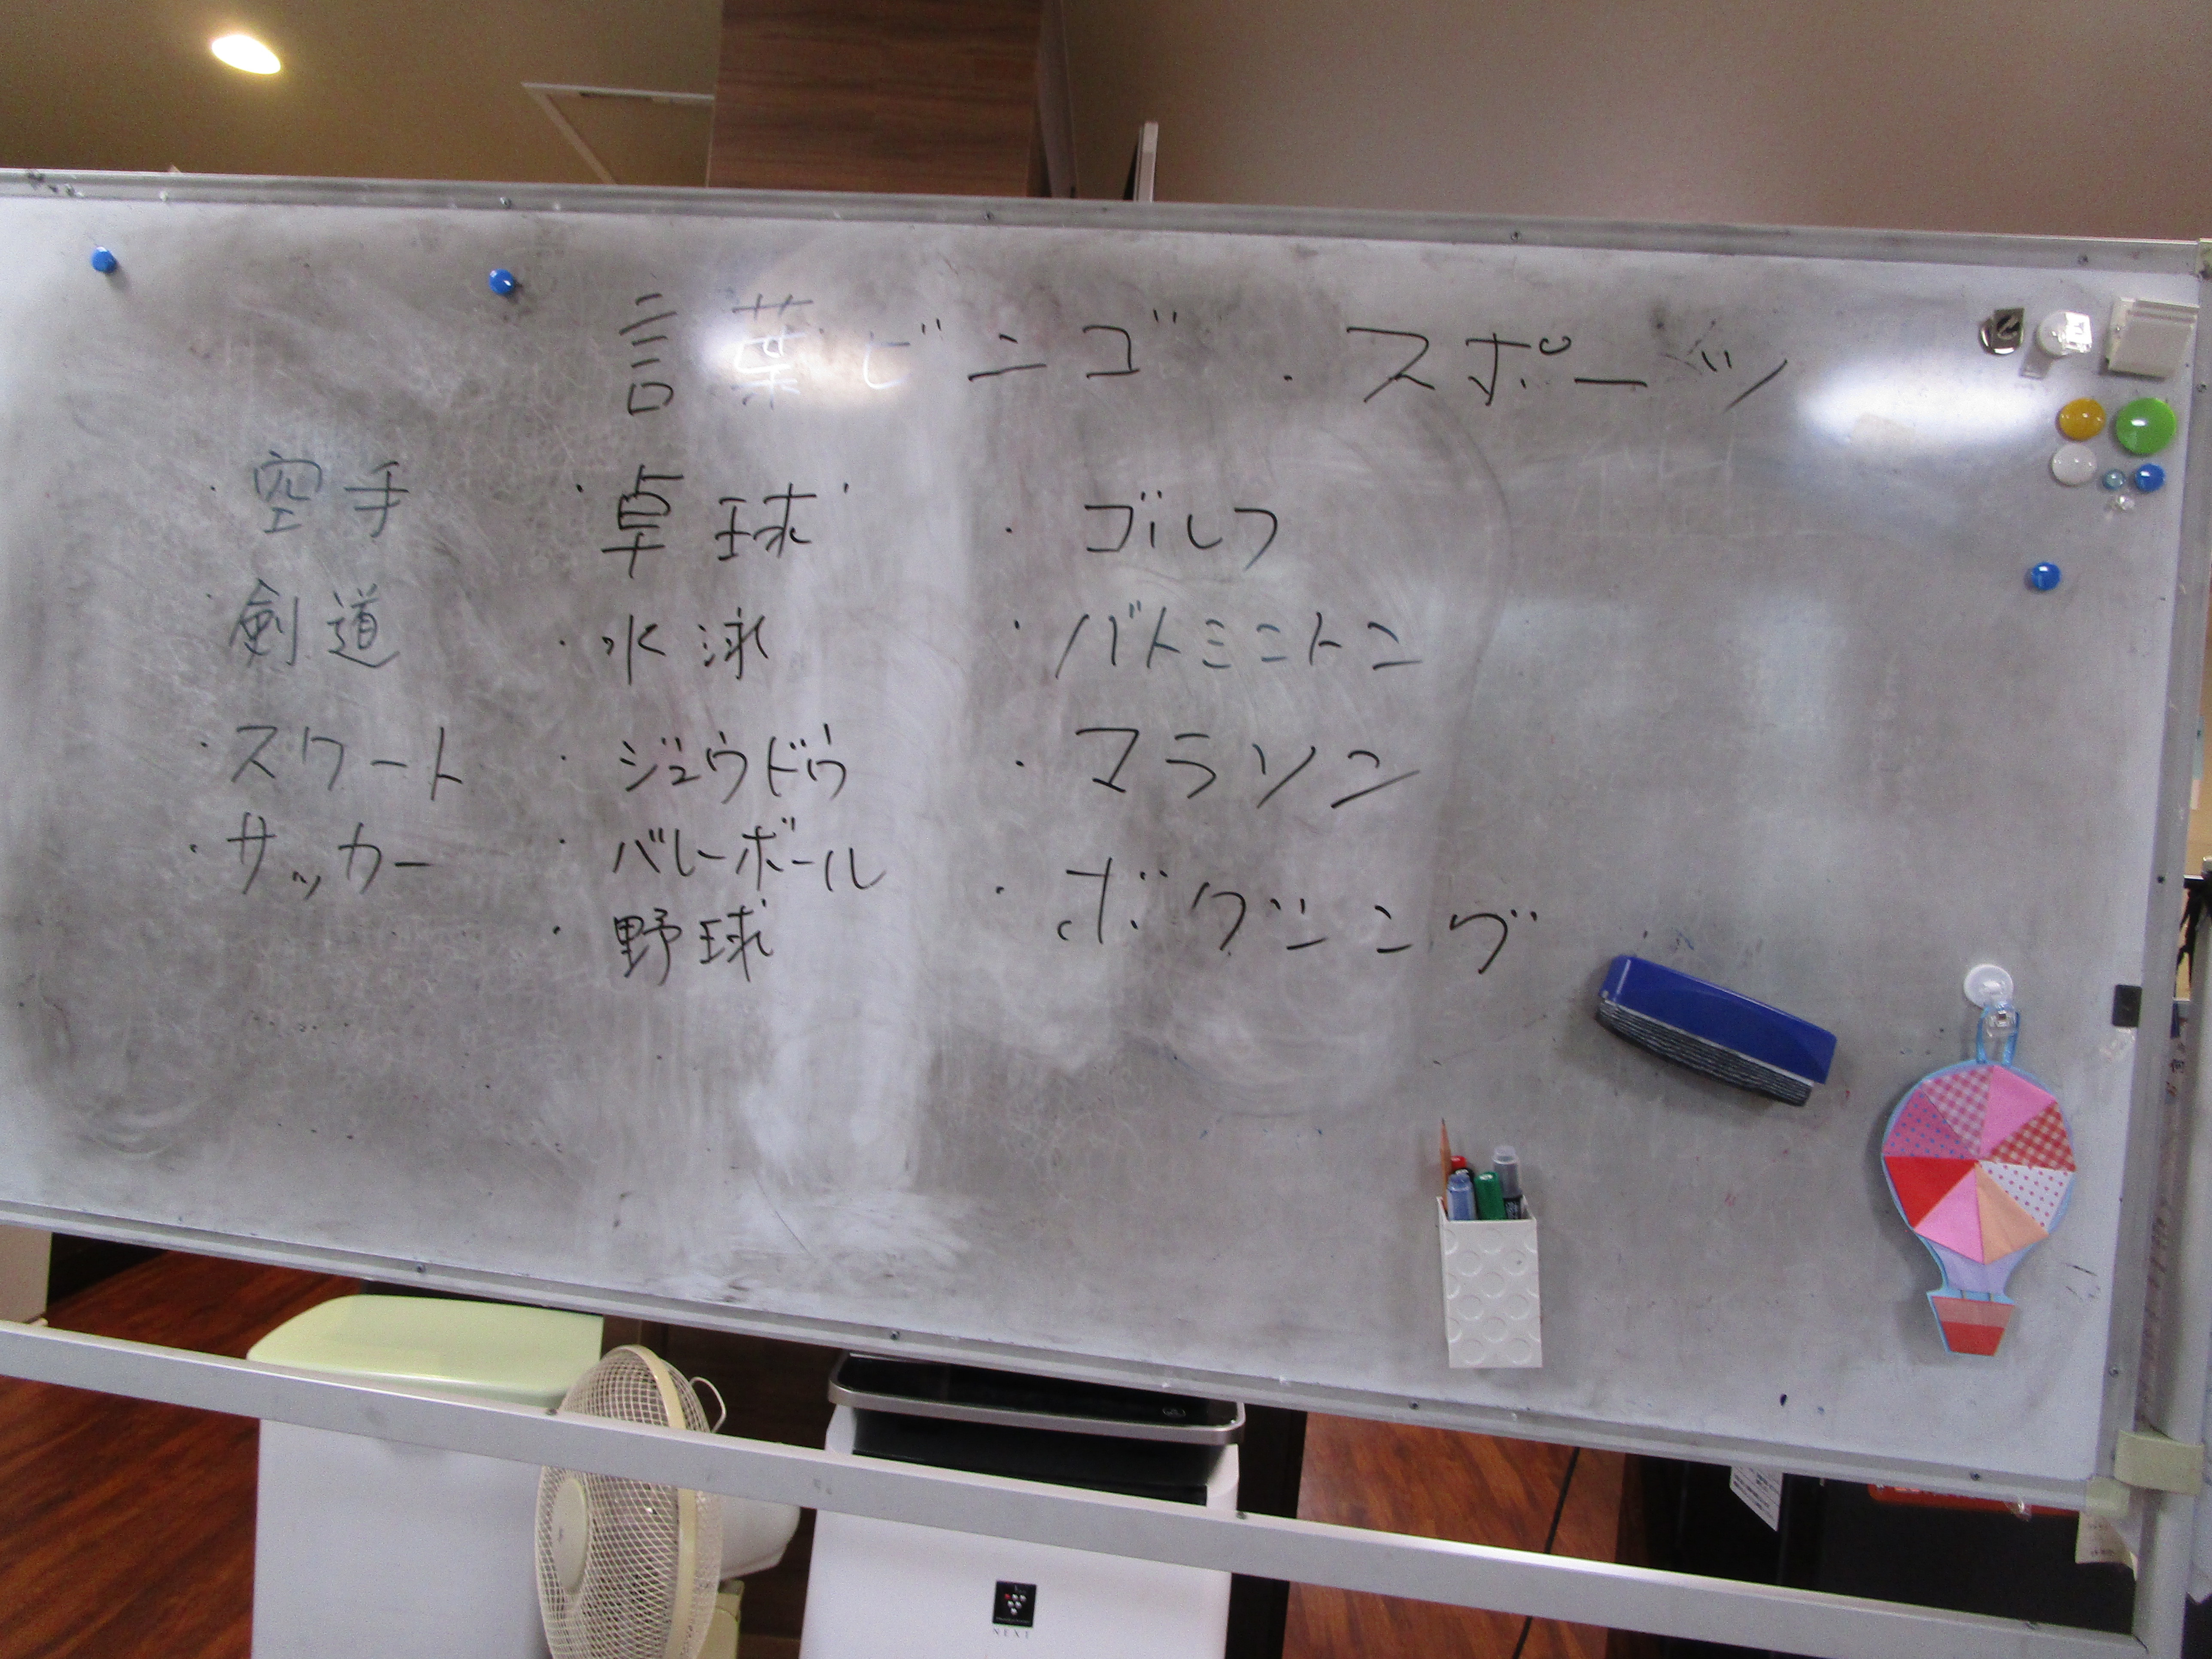 言葉ビンゴ・スポーツ
・空手
・剣道
・スワート
・サッカー
・卓球
・水泳
・ジュウドウ
・バレーボール
・野球
・ゴルフ
・バトミントン
・マラソン
・ボクシング
NEXT